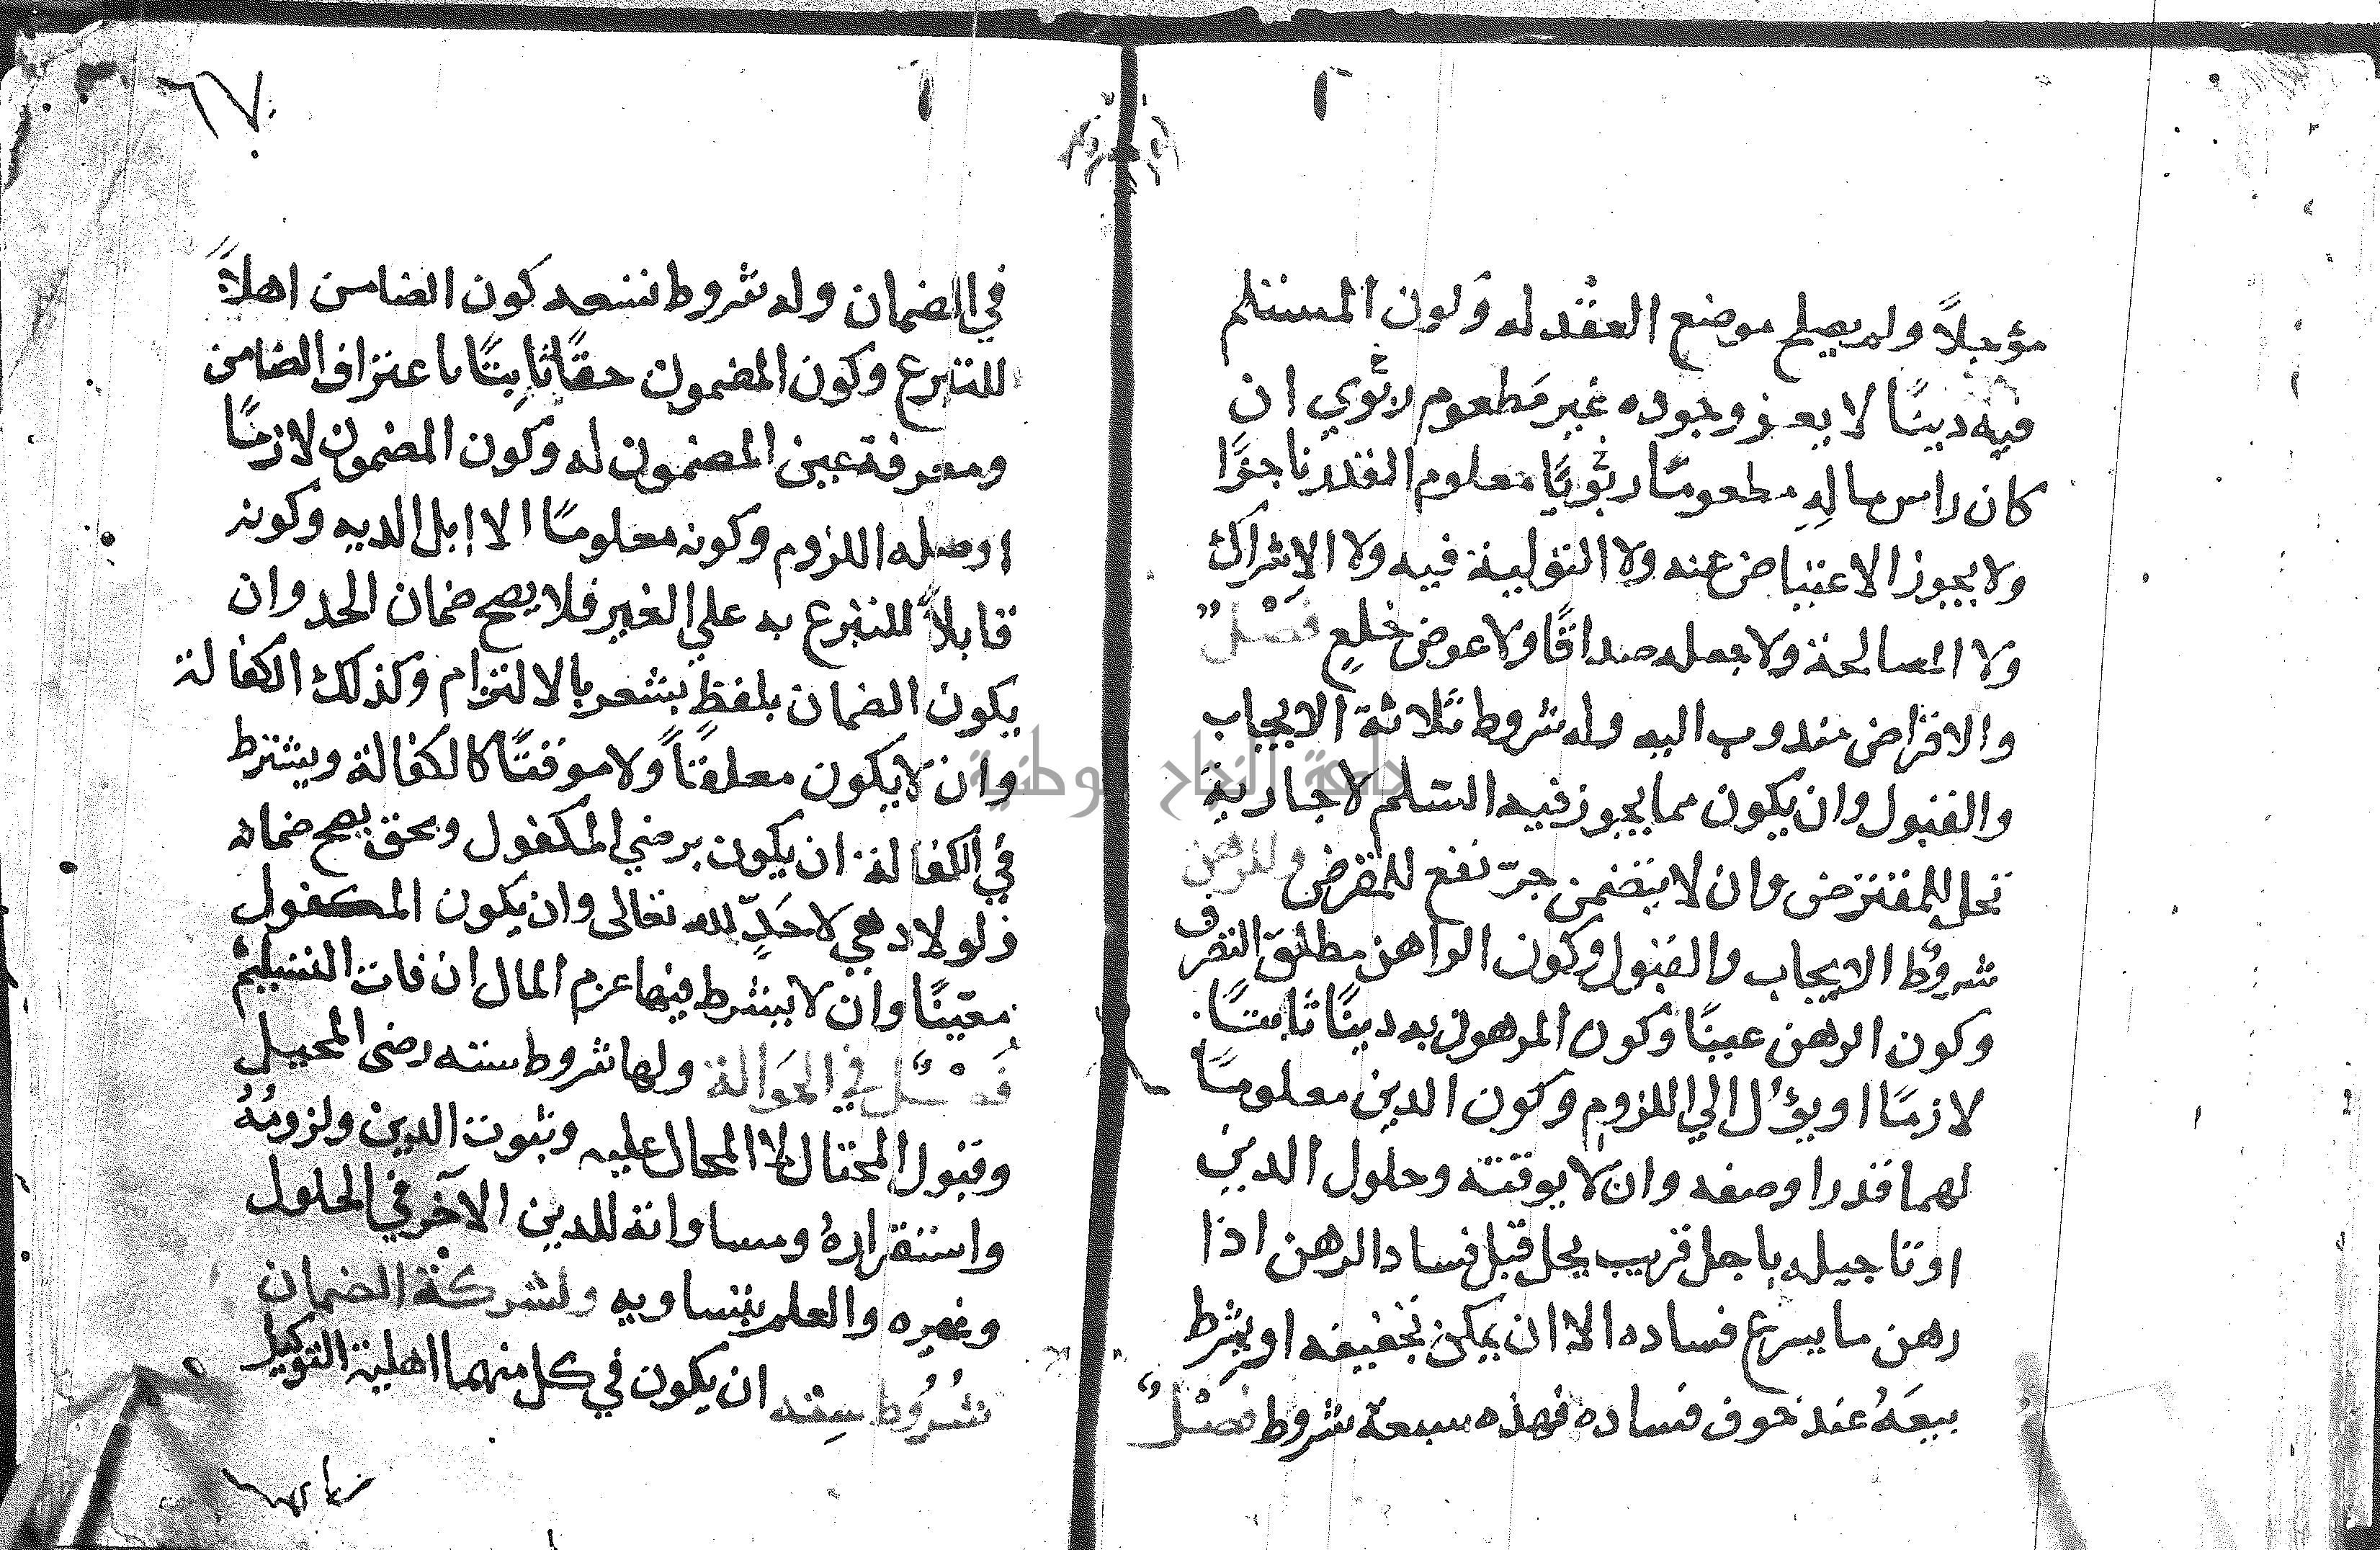 مؤجلاً ولم يصلح موضع العقد له وكون المستلم
فيه دينًا لا يعز وجوده غير مطعوم ربوي ان
كان راس ماله مطعومًا ربويًا معلوم القدر ناجزًا
ولا يجوز الاعتياض عنه ولا التولية فيه ولا الإشراك
ولا المصالحة ولا جعله صداقًا ولا عوض خلعٍ فصل
والاقتراض مندوب اليه وله شروط ثلاثة الايجاب
والقبول وان يكون مما يجوز فيه السلم لا جارية
تحل للمقترض وان لا يتضمن جرّ نفع للمقرض وللرهن
شروط الايجاب والقبول وكون الراهن مطلق التصرف
وكون الرهن عينًا وكون المرهون به دينًا ثابتًا
لازمًا او يؤل الي اللزوم وكون الدين معلومًا
لهما قدرا وصفه وان لا يوقته وحلول الدين
او تاجيله باجل قريب يحل قبل فساد الرهن اذا
رهن ما يسرع فساده الا ان يمكن تجفيفه او يشرط
بيعَهُ عند خوف فساده فهذه سبعة شروط فصل
٦٧
في الضمان وله شروط تسعه كون الضامن اهلاً
للتبرع وكون المضمون حقًا ثابتًا باعتراف الضامن
ومعرفة عين المضمون له وكون المضمون لازمًا
او صله اللزوم وكونه معلومًا الا إبل الديه وكونه
قابلاً للتبرع به علي الغير فلا يصح ضمان الحد وان
يكون الضمان بلفظ يشعر بالالتزام وكذلك الكفالة
وان لا يكون معلقًا ولا موقتًا كالكفالة ويشترط
في الكفالة ان يكون برضي المكفول وبحق يصح ضمانه
ولو لادمي لا حَدٍّ لله تعالى وان يكون المكفول
معيّنًا وان لا يشرط فيها غرم المال ان فات التسليم
فصل في الحوالة ولها شروط سته رضى المحيل
وقبول المحتال لا المحال عليه وثبوت الدين ولزومُهُ
واستقرارهُ ومساواته للدين الآخر في الحلول
وغيره والعلم بتساويه ولشركة الضمان
شُرُوط سِته ان يكون في كل منهما اهلية التوكيل